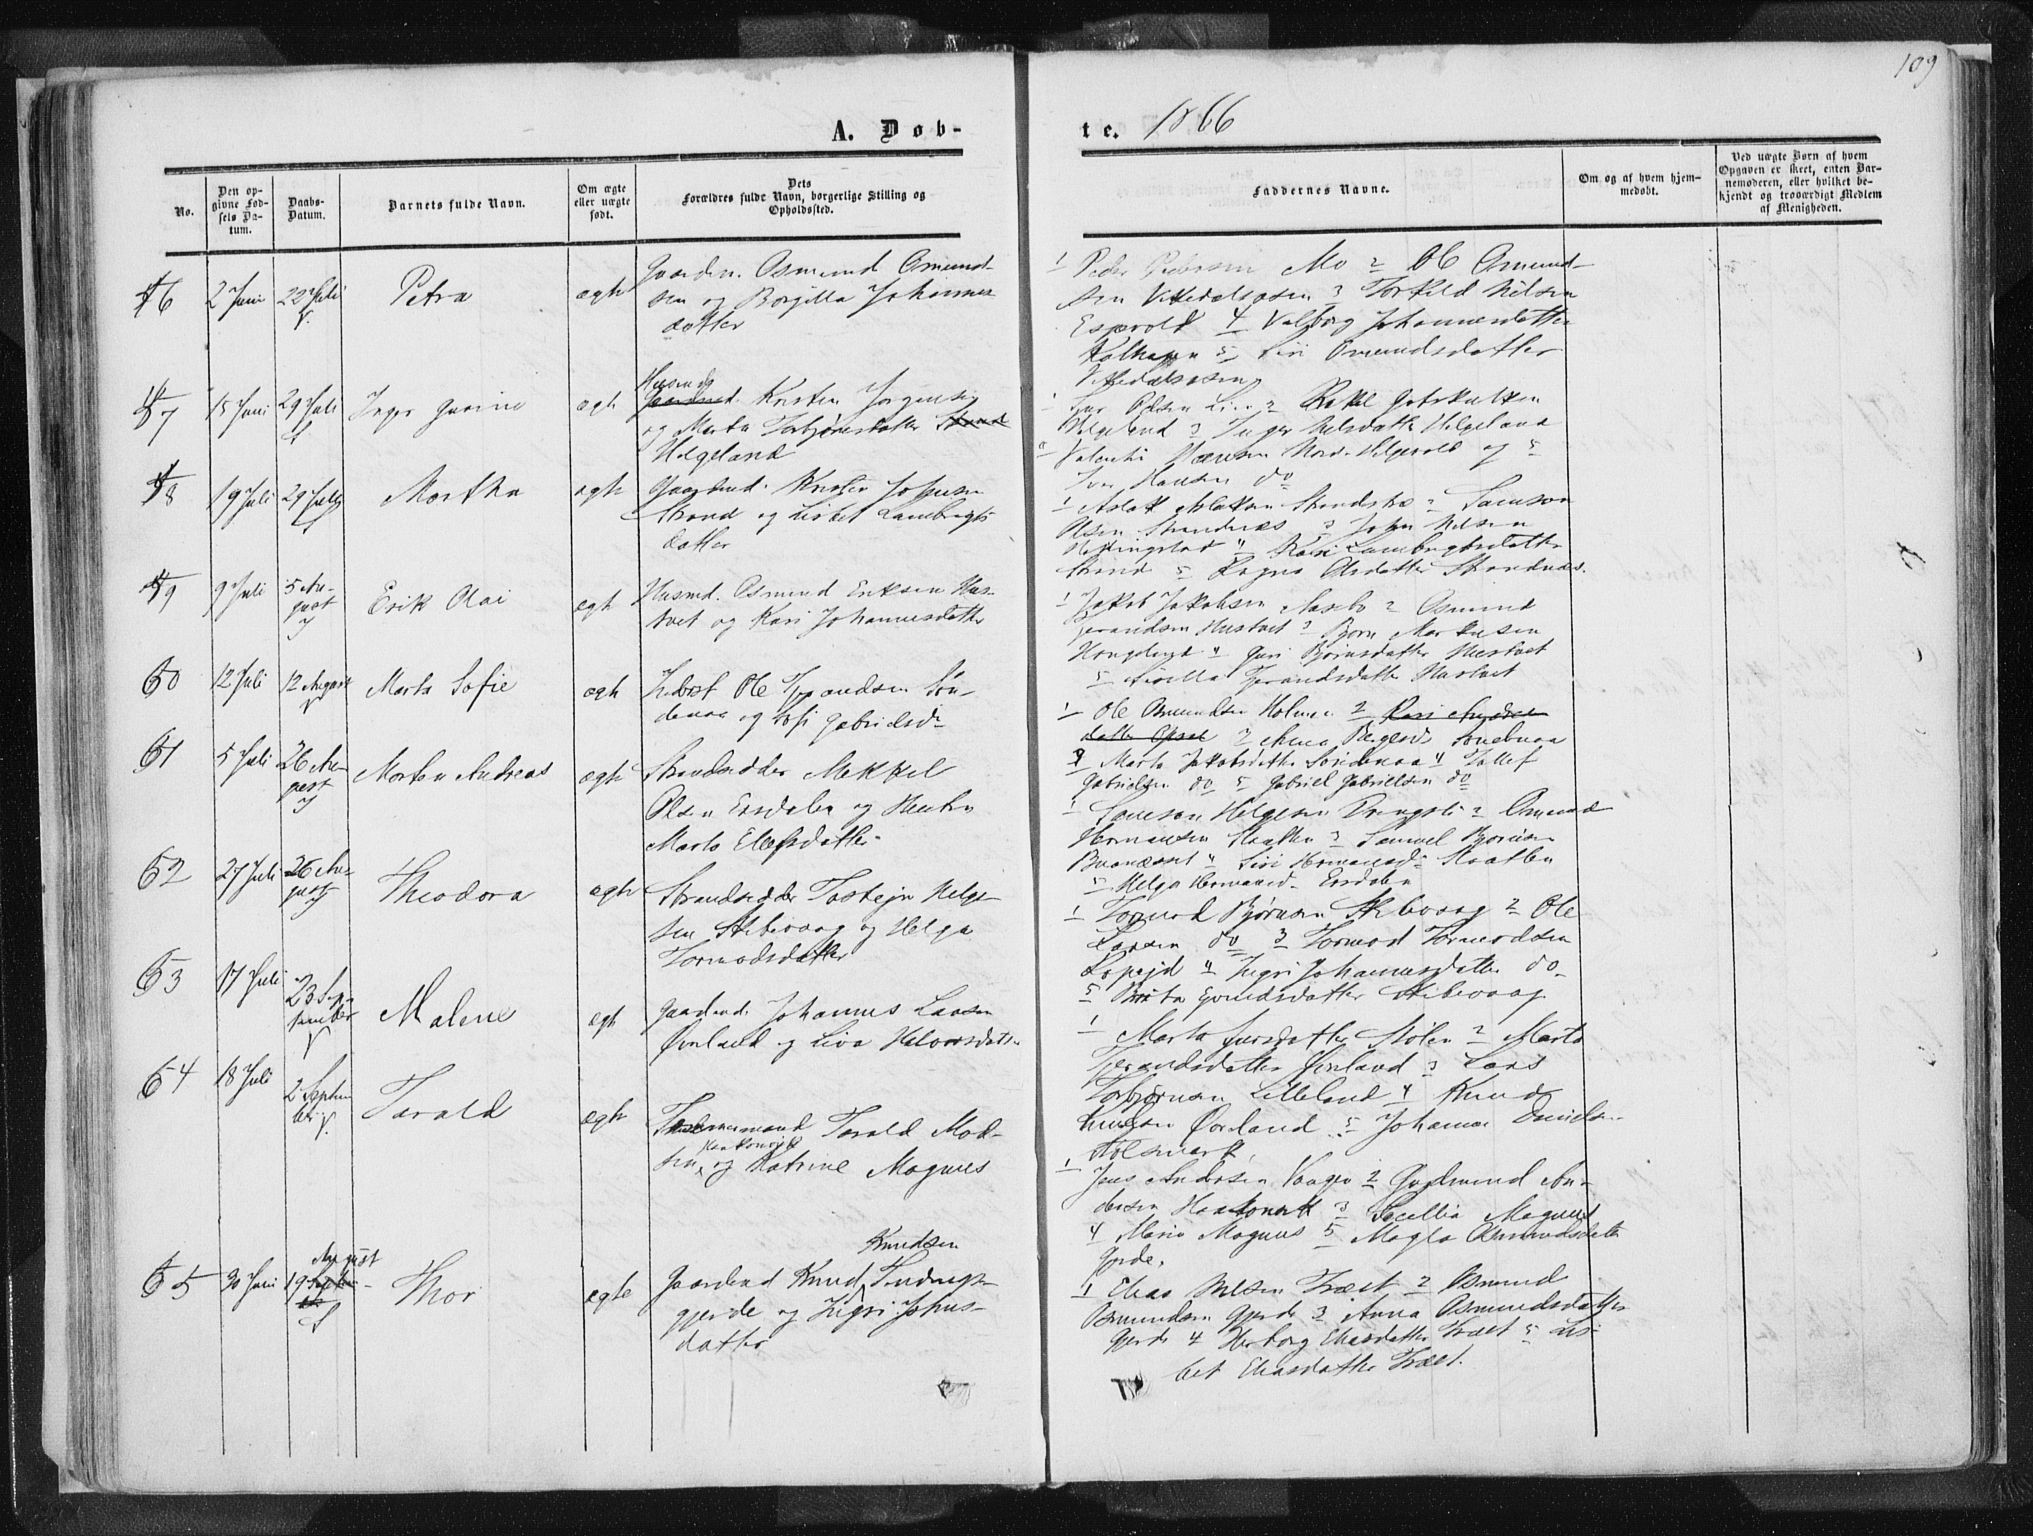 109
A. Døb-
te. 1866
No.
Den opgivne Fødsels Datum.
Daabs-Datum.
Barnets fulde Navn.
Om ægte eller uægte født.
Dets Forældres fulde Navn, borgerlige Stilling og Opholdssted.
Faddernes Navne.
Om og af hvem hjemmedøbt.
Ved uægte Børn af hvem Opgaven er skeet, enten Barnemoderen, eller hvilket bekjendt og troværdigt Medlem af Menigheden.
46 2 Juni 22 Juli Petra ægte
Gaardm. Osmund Osmund-
sen og Borgilla Johannes
datter
1 Peder Pedersen Mo 2 Ole Osmund-
sen Vikedalsosen 3 Torkild Nilsen
4 Valborg Johannesdatter
5 Siri Osmundsdatter
Vikedalsosen
47 15 Juni 29 Juli Inger Gurine ægte
Husmd
Gaardmd. Kristen Jørgensen
og Marta Torbjørnsdatter Strand
Helgeland
Olsen Lien 2
Helgeland 3 Inger Nilsdatter Helgeland
Hansen Nord. og 5
Iver Hansen do
48 19 Juli 29 Juli Martha ægte
Gaardmd. Kristen Johnsen
Strand og Lisbet Lambregts
datter
1 Aslak Aslaksen 2 Samson
Olsen Strandnæs 3 John Nilsen
4 Kari Lambregtsdatter
Strand 5 Ragna Olsdatter Strandnæs.
49 9 Juli 5 Au-
gust Erik Olai ægte
Husmd. Osmund Eriksen Hus-
tvet og Kari Johannesdatter
1 Jakob Jakobsen 2 Osmund
Gerandsen Hustvet 3 Bjørn Markusen
4 Guri Bjørnsdatter Hustvet
5 Gerandsdatter Hustvet
50 12 Juli 12 August Marta Sofie ægte
Inderst Ole Tjerandsen Søn-
denaa og Sofi Gabrielsd.
1 Ole Osmundsen 2 Kari
datter Opsal 2 Søndenaa
3 Marta Jakobsdatter Søndenaa 4 Tollef
Gabrielsen do 5 Gabriel Gabrielsen do
51 5 Juli 26 Au-
gust Morten Andreas ægte
Strandsidder Mikkel
Olsen Ersdalen og Hustru
Marta Elefsdatter
1 Samson Helgesen 2 Osmund
Hermansen 3 Samuel Bjørnsen
4 Siri Hermansd.
5 Helga Hermansd. Ersdalen
52 27 Juli 26 Au-
gust Theodora ægte
Strandsidder Tostejn Helge-
sen Skibevaag og Helga
Tormodsdatter
1 Tormod Bjørnsen Skibevaag 2 Ole
Larsen do 3 Tormod Tormodsen
Ropejd 4 Ingri Johannesdatter do
5 Brita Eivindsdatter Skibevaag
53 17 Juli 23 Sep-
tember Malene ægte
Gaardmd. Johannes Larsen
Ørnland og Liva Halvorsdatter
1 Marta Iversdatter Stølen 2 Marta
Tjerandsdatter Ørnland 3 Lars
Torbjørnsen Lilleland 4 Knud
Knudsen Ørnland 5 Johannes Danielsen
54 18 Juli 2 Septem-
ber Torald ægte
Torald Mod-
sen, og Katrine Magnus
Haakonvik
1 Jens Andersen Vaage 2 Gudmund An-
dersen Haakonvik 3 Secellia Magnus
4 Maria Magnus 5 Magla Osmundsdatter
Gjerde.
55 30 Juni 19 Septem-
ber
August Thor ægte
Knudsen
Gaardmd Knud, Tindings-
gjerde og Ingri Johns-
datter
1 Elias Nilsen Træet 2 Osmund
Osmundsen Gjerde 3 Anna Osmundsdatter
Gjerde 4 Herborg Eliasdatter Træet 5 Lis-
bet Eliasdatter Træet.